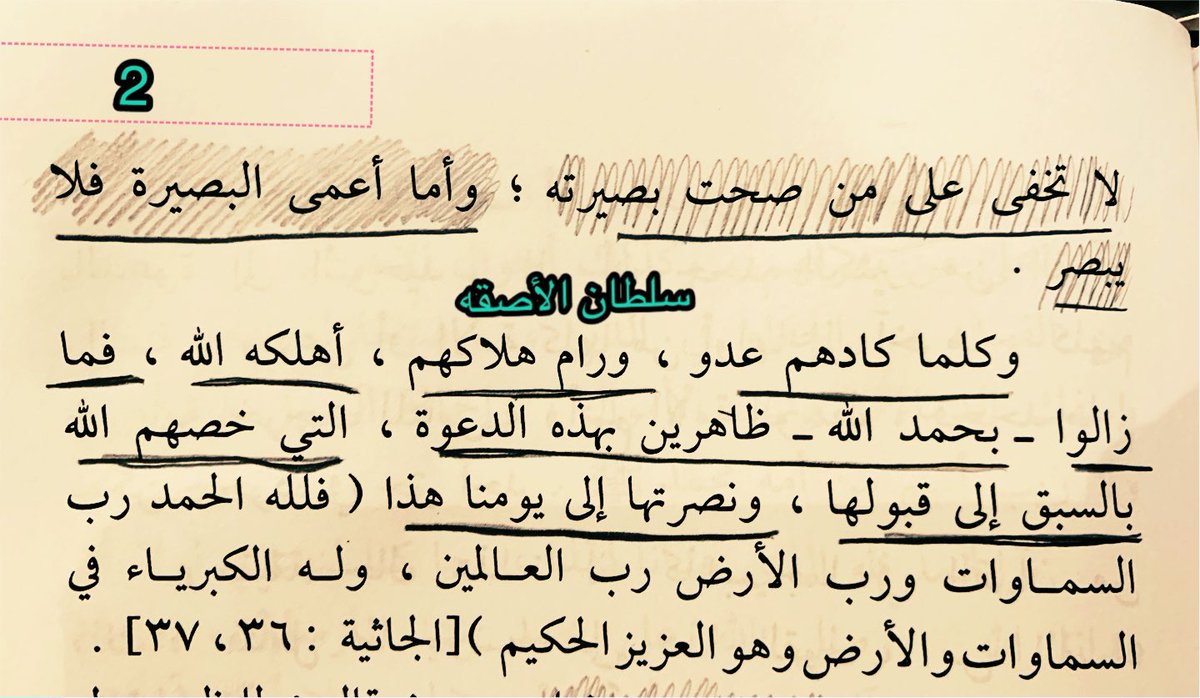 2
لا تخفى على من صحت بصيرته ؛ وأما أعمى البصيرة فلا
يبصر .
سلطان الأصقه
وكلما كادهم عدو ، ورام هلاكهم ، أهلكه الله ، فما
زالوا ـ بحمد الله ـ ظاهرين بهذه الدعوة ، التي خصهم الله
بالسبق إلى قبولها ، ونصرتها إلى يومنا هذا ( فلله الحمد رب
السمـاوات ورب الأرض رب العـالمين ، ولـه الكبريـاء في
السماوات والأرض وهو العزيز الحكيم )[الجاثية : ٣٦ ، ٣٧] .